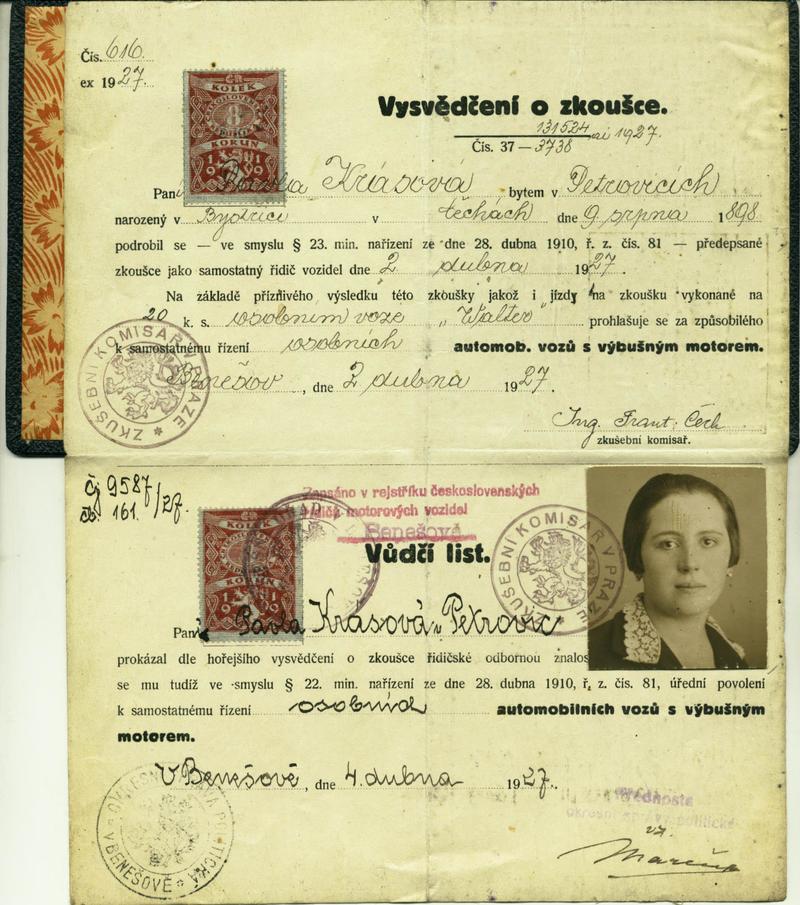 Čís. 616.
ex 1927.
ČR
KOLEK
8
KORUN
1919
Vysvědčení o zkoušce.
131524 ai 1927.
Čís. 37 — 3738
Paní Pavla Krásová bytem v Petrovicích
narozený v Bystřici v Čechách dne 9 srpna 1898
podrobil se — ve smyslu § 23. min. nařízení ze dne 28. dubna 1910, ř. z. čís. 81 — předepsané
zkoušce jako samostatný řidič vozidel dne 2 dubna 1927.
Na základě příznivého výsledku této zkoušky jakož i jízdy na zkoušku vykonané na
20 k. s. osobním voze „Walter" prohlašuje se za způsobilého
k samostatnému řízení osobních automob. vozů s výbušným motorem.
Benešov, dne 2 dubna 1927.
ZKUŠEBNÍ KOMISAŘ V PRAZE
Ing. Frant. Čech
zkušební komisař.
Čj 9587/27.
161.
Zapsáno v rejstříku československých
řidičů motorových vozidel
Benešově
KOLEK
KORUN
1919
ZKUŠEBNÍ KOMISAŘ V PRAZE
Vůdčí list.
Paní Pavla Krásová v Petrovic
prokázal dle hořejšího vysvědčení o zkoušce řidičské odbornou znalos
se mu tudíž ve smyslu § 22. min. nařízení ze dne 28. dubna 1910, ř. z. čís. 81, úřední povolení
k samostatnému řízení osobních automobilních vozů s výbušným
motorem.
V Benešově, dne 4. dubna 1927.
přednosta
okresní správy politické
OKRESNÍ SPRÁVA POLITICKÁ V BENEŠOVĚ
vz.